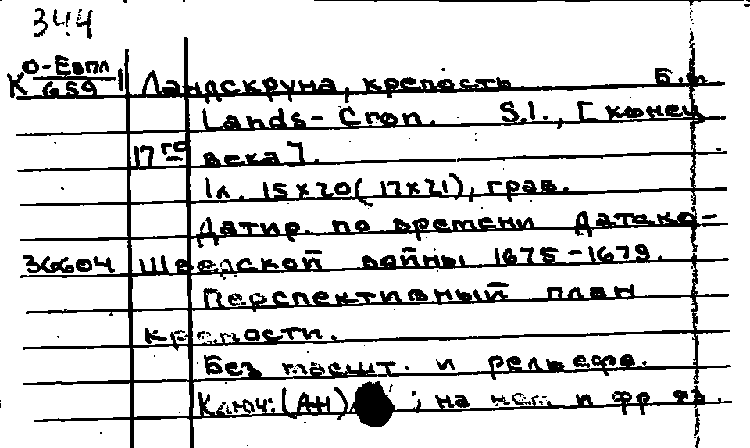 344
К О-Евпл 1 Ландскруна, крепость Б.м.
659
Lands-Cron. S.l., [конец
17го века].
1л. 15x20(17x21), грав.
Датир. по времени Датско-
36604 Шведской войны 1675-1679.
Перспективный план
крепости.
Без масшт. и рельефа.
Ключ: (А-Н) ; на нем и фр яз.